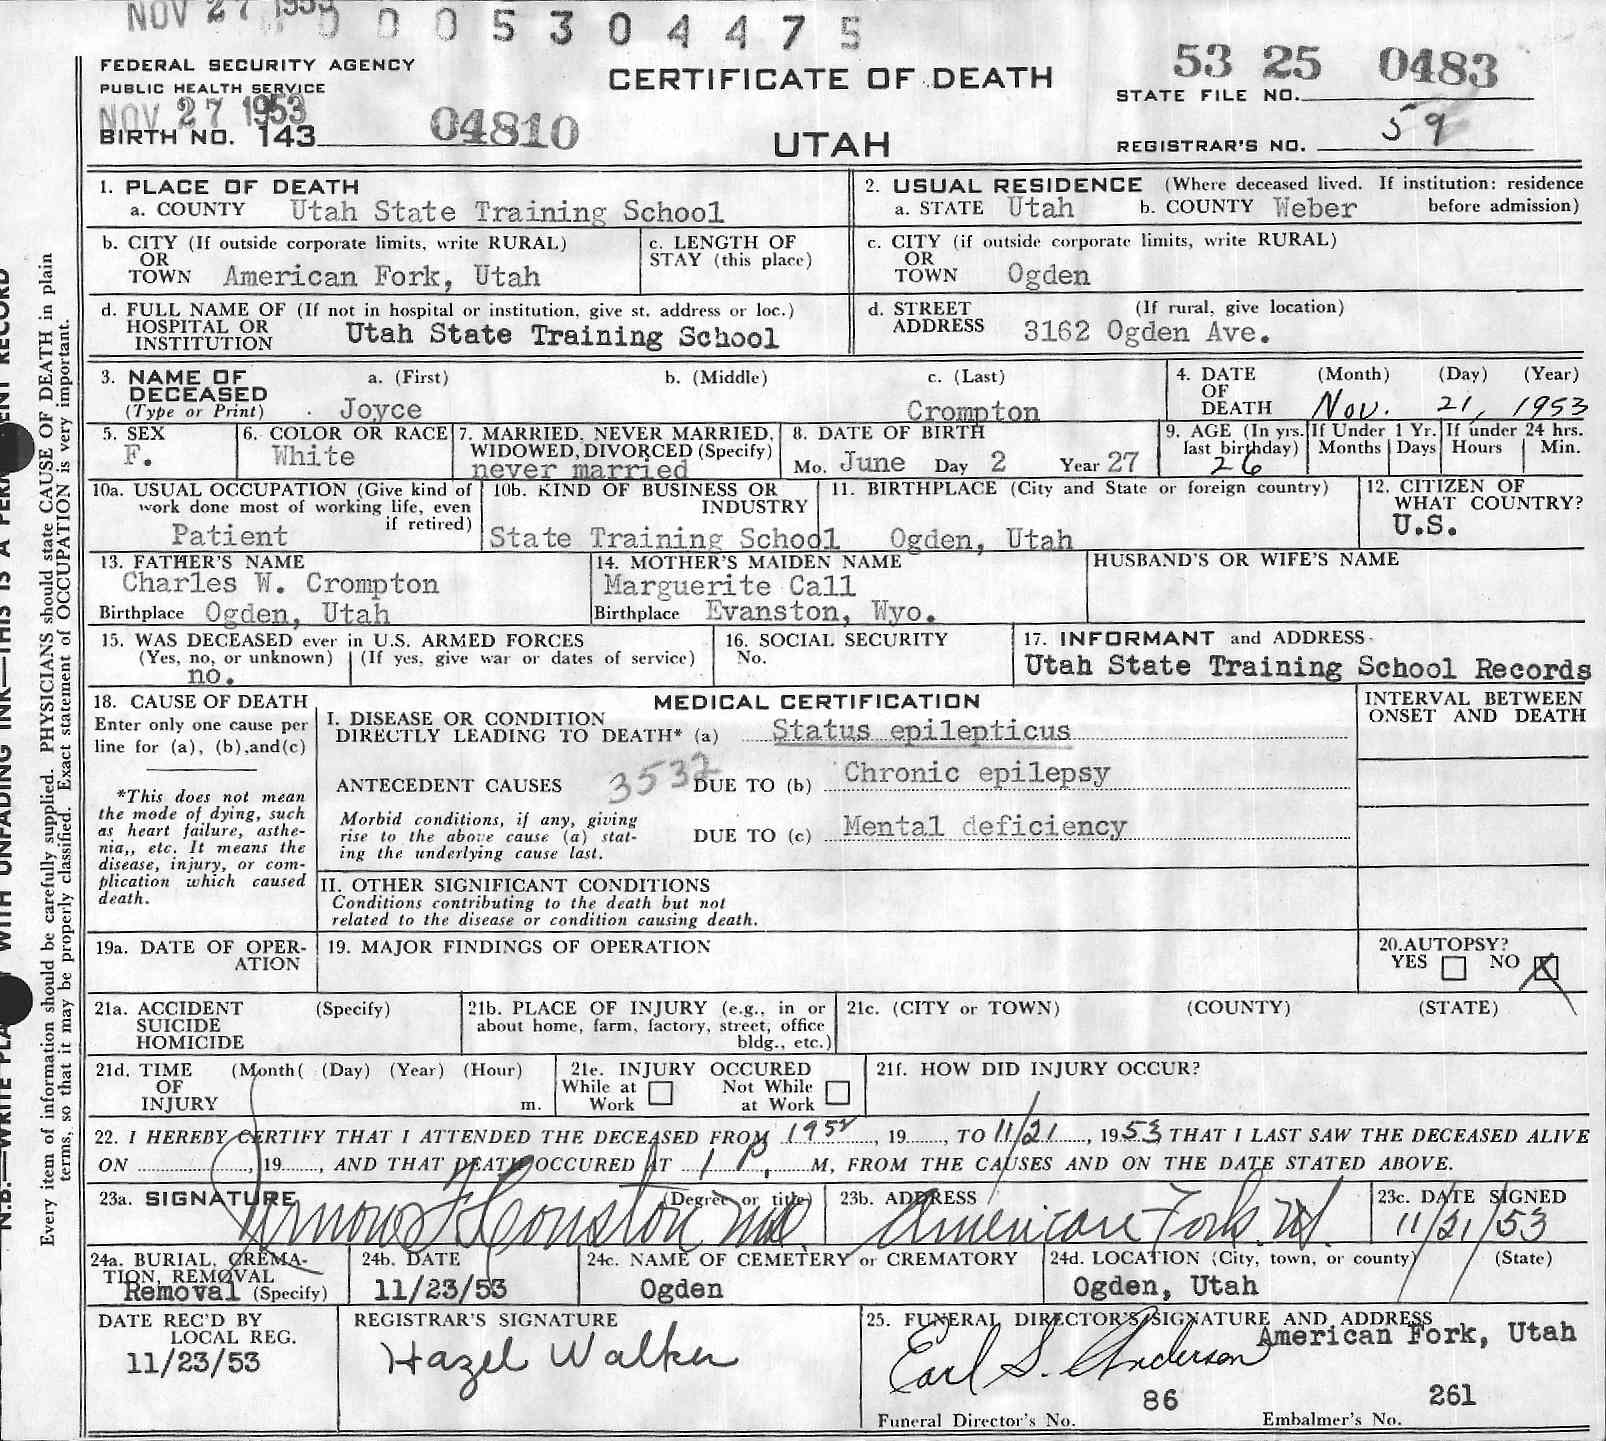 NOV 27 1953
0 0 0 5 3 0 4 4 7 5
FEDERAL SECURITY AGENCY
PUBLIC HEALTH SERVICE
NOV 27 1953
BIRTH NO. 143 04810
CERTIFICATE OF DEATH
UTAH
53 25 0483
STATE FILE NO.
REGISTRAR'S NO. 59
1. PLACE OF DEATH
a. COUNTY Utah State Training School
2. USUAL RESIDENCE (Where deceased lived. If institution: residence
a. STATE Utah b. COUNTY Weber before admission)
b. CITY (If outside corporate limits, write RURAL)
OR
TOWN American Fork, Utah
c. LENGTH OF
STAY (this place)
c. CITY (if outside corporate limits, write RURAL)
OR
TOWN Ogden
d. FULL NAME OF (If not in hospital or institution, give st. address or loc.)
HOSPITAL OR
INSTITUTION Utah State Training School
d. STREET (If rural, give location)
ADDRESS 3162 Ogden Ave.
3. NAME OF a. (First) b. (Middle) c. (Last)
DECEASED
(Type or Print) Joyce Crompton
4. DATE (Month) (Day) (Year)
OF
DEATH Nov. 21, 1953
5. SEX
F.
6. COLOR OR RACE
White
7. MARRIED, NEVER MARRIED,
WIDOWED, DIVORCED (Specify)
never married
8. DATE OF BIRTH
Mo. June Day 2 Year 27
9. AGE (In yrs.
last birthday)
26
If Under 1 Yr.
Months Days
If under 24 hrs.
Hours Min.
10a. USUAL OCCUPATION (Give kind of
work done most of working life, even
if retired)
Patient
10b. KIND OF BUSINESS OR
INDUSTRY
State Training School
11. BIRTHPLACE (City and State or foreign country)
Ogden, Utah
12. CITIZEN OF
WHAT COUNTRY?
U.S.
13. FATHER'S NAME
Charles W. Crompton
Birthplace Ogden, Utah
14. MOTHER'S MAIDEN NAME
Marguerite Call
Birthplace Evanston, Wyo.
HUSBAND'S OR WIFE'S NAME
15. WAS DECEASED ever in U.S. ARMED FORCES
(Yes, no, or unknown) (If yes, give war or dates of service)
no.
16. SOCIAL SECURITY
No.
17. INFORMANT and ADDRESS
Utah State Training School Records
18. CAUSE OF DEATH
Enter only one cause per
line for (a), (b),and(c)
*This does not mean
the mode of dying, such
as heart failure, asthe-
nia,, etc. It means the
disease, injury, or com-
plication which caused
death.
MEDICAL CERTIFICATION
I. DISEASE OR CONDITION
DIRECTLY LEADING TO DEATH* (a) Status epilepticus
ANTECEDENT CAUSES 3532 DUE TO (b) Chronic epilepsy
Morbid conditions, if any, giving
rise to the above cause (a) stat-
ing the underlying cause last.
DUE TO (c) Mental deficiency
II. OTHER SIGNIFICANT CONDITIONS
Conditions contributing to the death but not
related to the disease or condition causing death.
INTERVAL BETWEEN
ONSET AND DEATH
19a. DATE OF OPER-
ATION
19. MAJOR FINDINGS OF OPERATION
20.AUTOPSY?
YES NO X
21a. ACCIDENT (Specify)
SUICIDE
HOMICIDE
21b. PLACE OF INJURY (e.g., in or
about home, farm, factory, street, office
bldg., etc.)
21c. (CITY or TOWN) (COUNTY) (STATE)
21d. TIME (Month( (Day) (Year) (Hour)
OF
INJURY m.
21e. INJURY OCCURED
While at Not While
Work at Work
21f. HOW DID INJURY OCCUR?
22. I HEREBY CERTIFY THAT I ATTENDED THE DECEASED FROM 1952, 19......, TO 11/21......, 1953 THAT I LAST SAW THE DECEASED ALIVE
ON ................, 19......, AND THAT DEATH OCCURED AT 1 P. M, FROM THE CAUSES AND ON THE DATE STATED ABOVE.
23a. SIGNATURE (Degree or title)
Houston MD.
23b. ADDRESS
American Fork, Ut.
23c. DATE SIGNED
11/21/53
24a. BURIAL, CREMA-
TION, REMOVAL
Removal (Specify)
24b. DATE
11/23/53
24c. NAME OF CEMETERY or CREMATORY
Ogden
24d. LOCATION (City, town, or county) (State)
Ogden, Utah
DATE REC'D BY
LOCAL REG.
11/23/53
REGISTRAR'S SIGNATURE
Hazel Walker
25. FUNERAL DIRECTOR'S SIGNATURE AND ADDRESS
American Fork, Utah
Earl S. Anderson
86
Funeral Director's No.
261
Embalmer's No.
Every item of information should be carefully supplied. PHYSICIANS should state CAUSE OF DEATH in plain
terms, so that it may be properly classified. Exact statement of OCCUPATION is very important.
N.B.—WRITE WITH UNFADING INK—THIS IS A RECORD